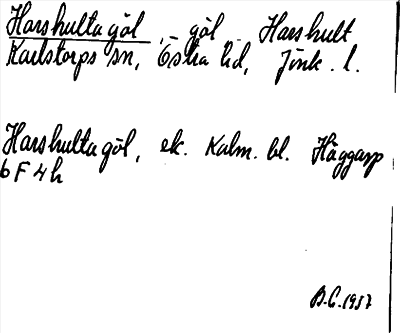 Harshulta göl, göl Harshult
Karlstorps sn, Östra hd, Jönk. l.
Harshulta göl, ek. Kalm. bl. Häggarp
6 F 4 h
B.G. 1957